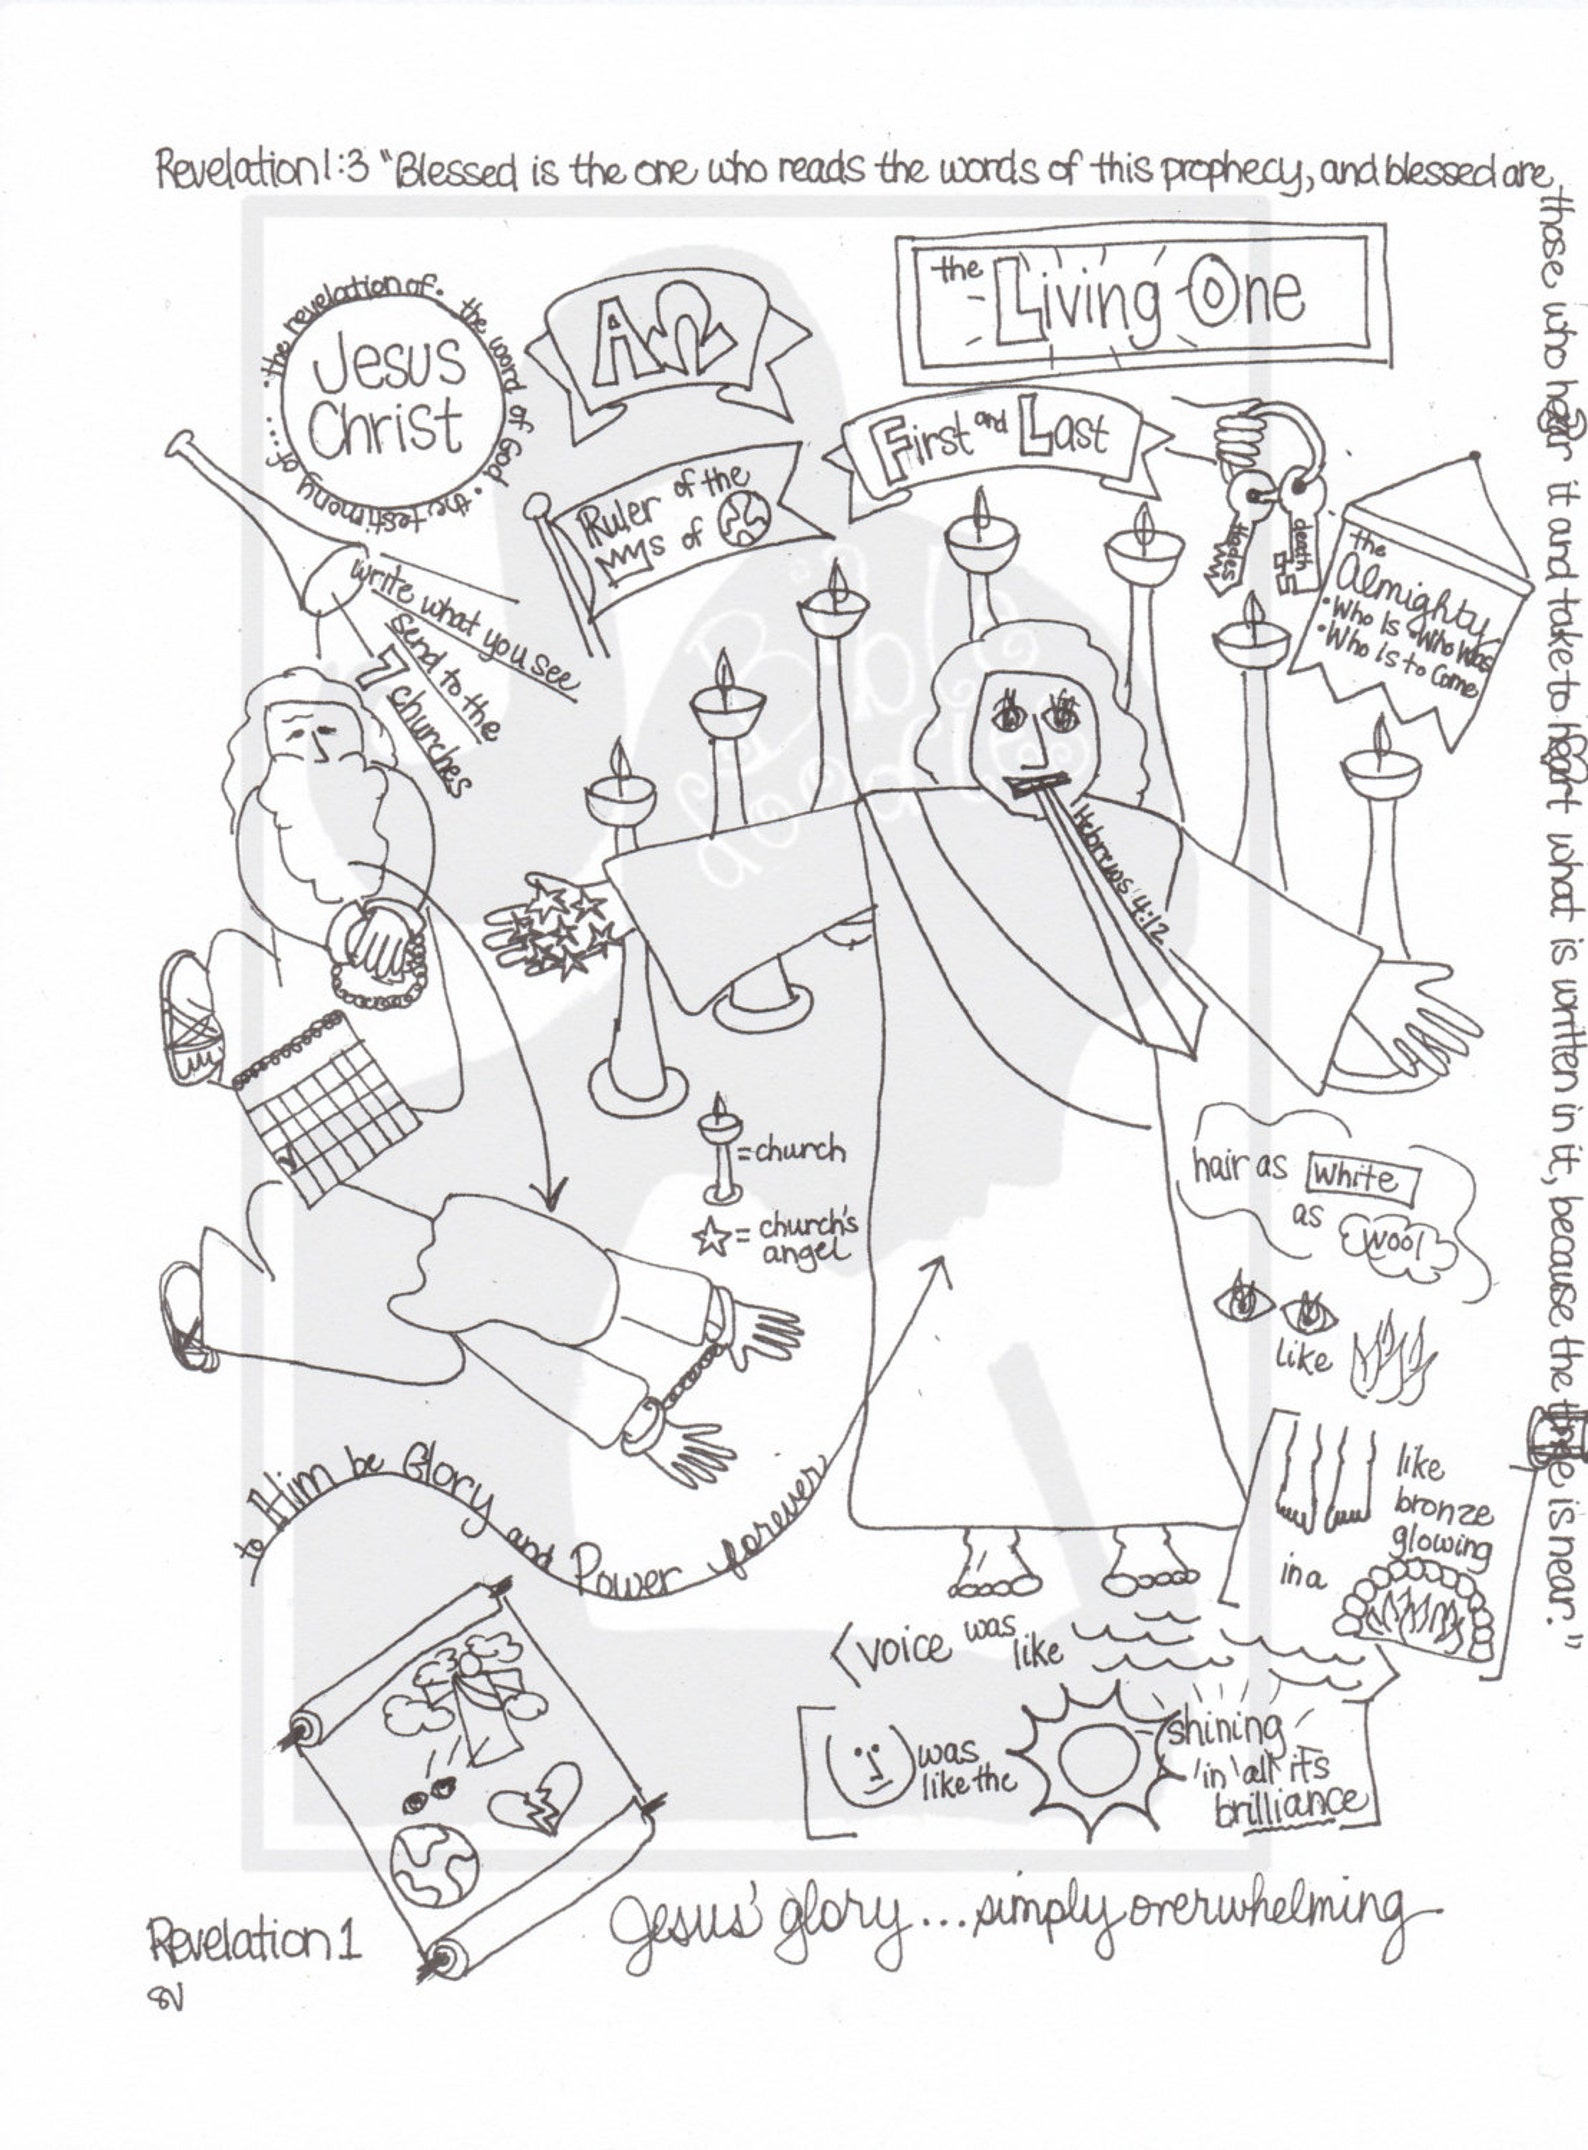 Revelation 1:3 "Blessed is the one who reads the words of this prophecy, and blessed are
those who hear it and take to heart what is written in it, because the time is near."
the Living One
Jesus
Christ
• the revelation of • the word of God • the testimony of ...
ΑΩ
First and Last
Ruler of the
s of
Hades
death
the
Almighty
• Who Is • Who Was
• Who is to Come
write what you see
send to the
7 churches
Bible
doodles
Hebrews 4:12
= church
= church's
angel
hair as white
as wool
like
like
bronze
glowing
in a
to Him be Glory and Power forever
voice was like
was
like the
shining
in all it's
brilliance
Jesus' glory... simply overwhelming
Revelation 1